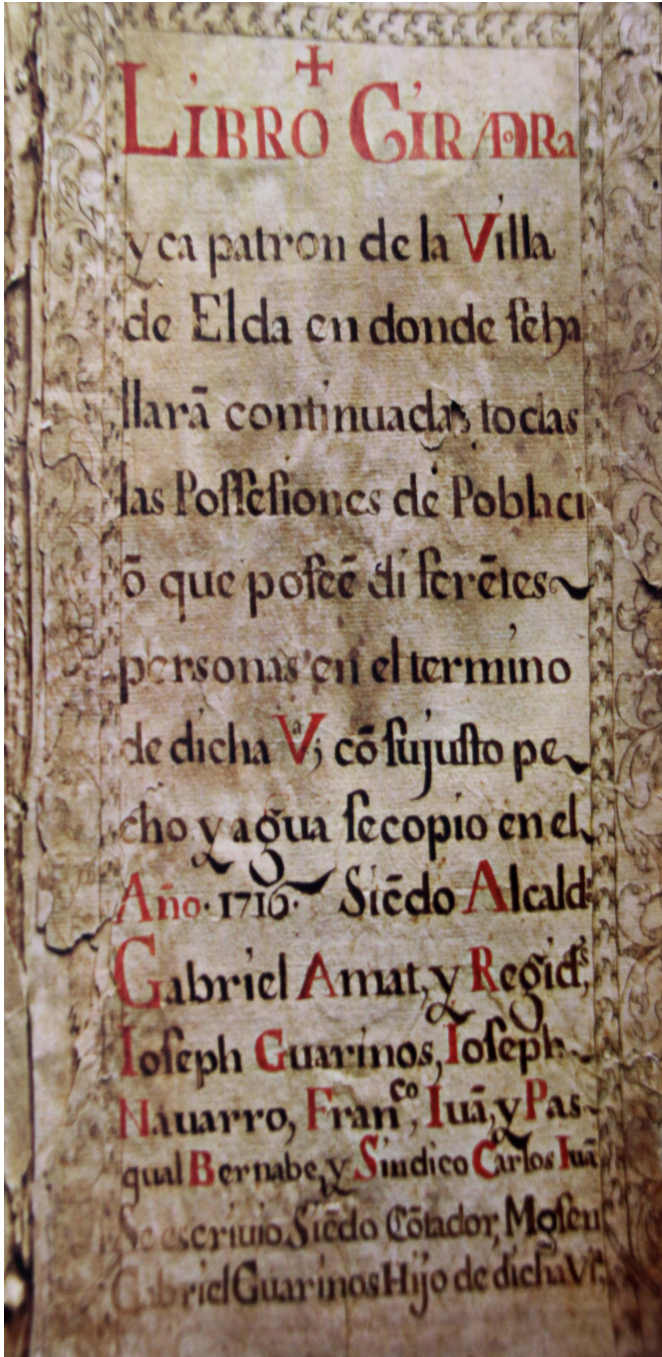 LIBRO GIRADoRa
y ca patron de la Villa
de Elda en donde ſe ha
llarā continuadas todas
las Poſſeſiones de Poblaci
ō que poſeē diferētes
personas en el termino
de dicha Vª; cō ſu juſto pe
cho y agua ſe copio en el
Año. 1716. Siēdo Alcald.ᵉ
Gabriel Amat, y Regid.ˢ,
Ioſeph Guarinos, Ioſeph
Nauarro, Fran.ᶜᵒ, Iuā, y Pas
qual Bernabe, y Sindico Carlos Iuā
Se escriuio Siēdo Cōtador, Moſen
Gabriel Guarinos Hijo de dicha Vª.